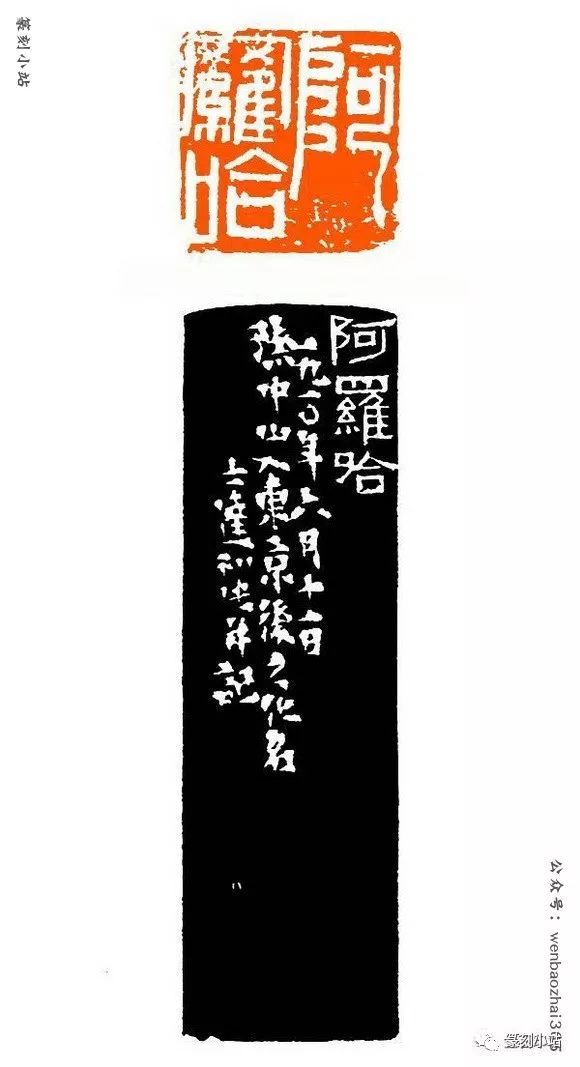 篆刻小站
阿羅哈
阿羅哈
一九一〇年六月十一日
孫中山入東京後之化名
達 并記
公众号：wenbaozhai365
篆刻小站